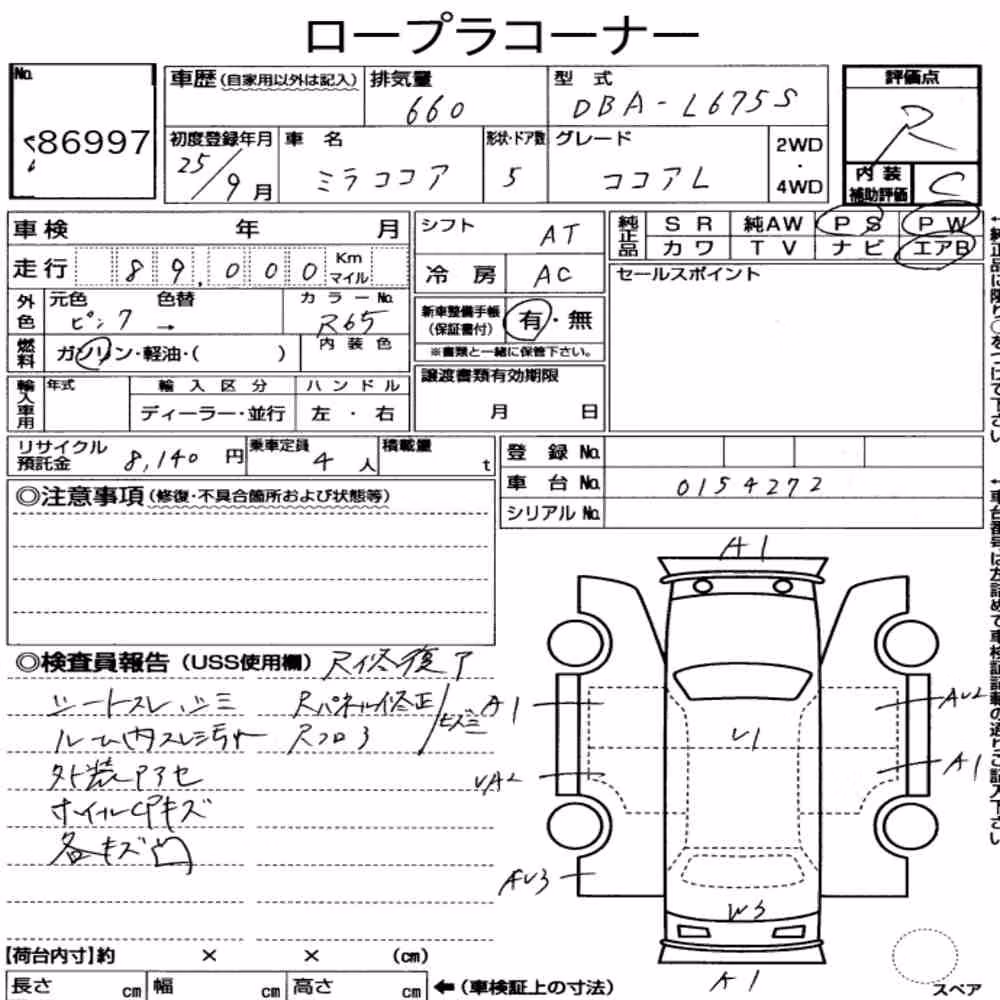 ロープラコーナー
No.
86997
車歴(自家用以外は記入)
排気量
660
型式
DBA-L675S
評価点
R
初度登録年月
25/9月
車名
ミラココア
形状・ドア数
5
グレード
ココアL
2WD
・
4WD
内装
補助評価
C
車検 年 月
シフト
AT
純正品
SR 純AW PS PW
カワ TV ナビ エアB
走行
89,000
Km
マイル
冷房
AC
セールスポイント
外色
元色 色替
ピンク →
カラーNo.
R65
新車整備手帳
(保証書付)
有・無
※書類と一緒に保管下さい。
燃料
ガソリン・軽油・( )
内装色
譲渡書類有効期限
月 日
輸入車用
年式
輸入区分
ディーラー・並行
ハンドル
左・右
リサイクル
預託金
8,140円
乗車定員
4人
積載量
t
登録No.
車台No.
0154272
シリアルNo.
◎注意事項(修復・不具合箇所および状態等)
◎検査員報告(USS使用欄)
R修復ア
シートスレ、シミ
Rパネル修正
ルーム内スレ
Rフロ
外装
ホイルCPキズ
各キズ凹
A1
A1
VA2
AU3
U1
AU2
A1
W3
A1
スペア
【荷台内寸】約 × × (cm)
長さ cm 幅 cm 高さ cm ←(車検証上の寸法)